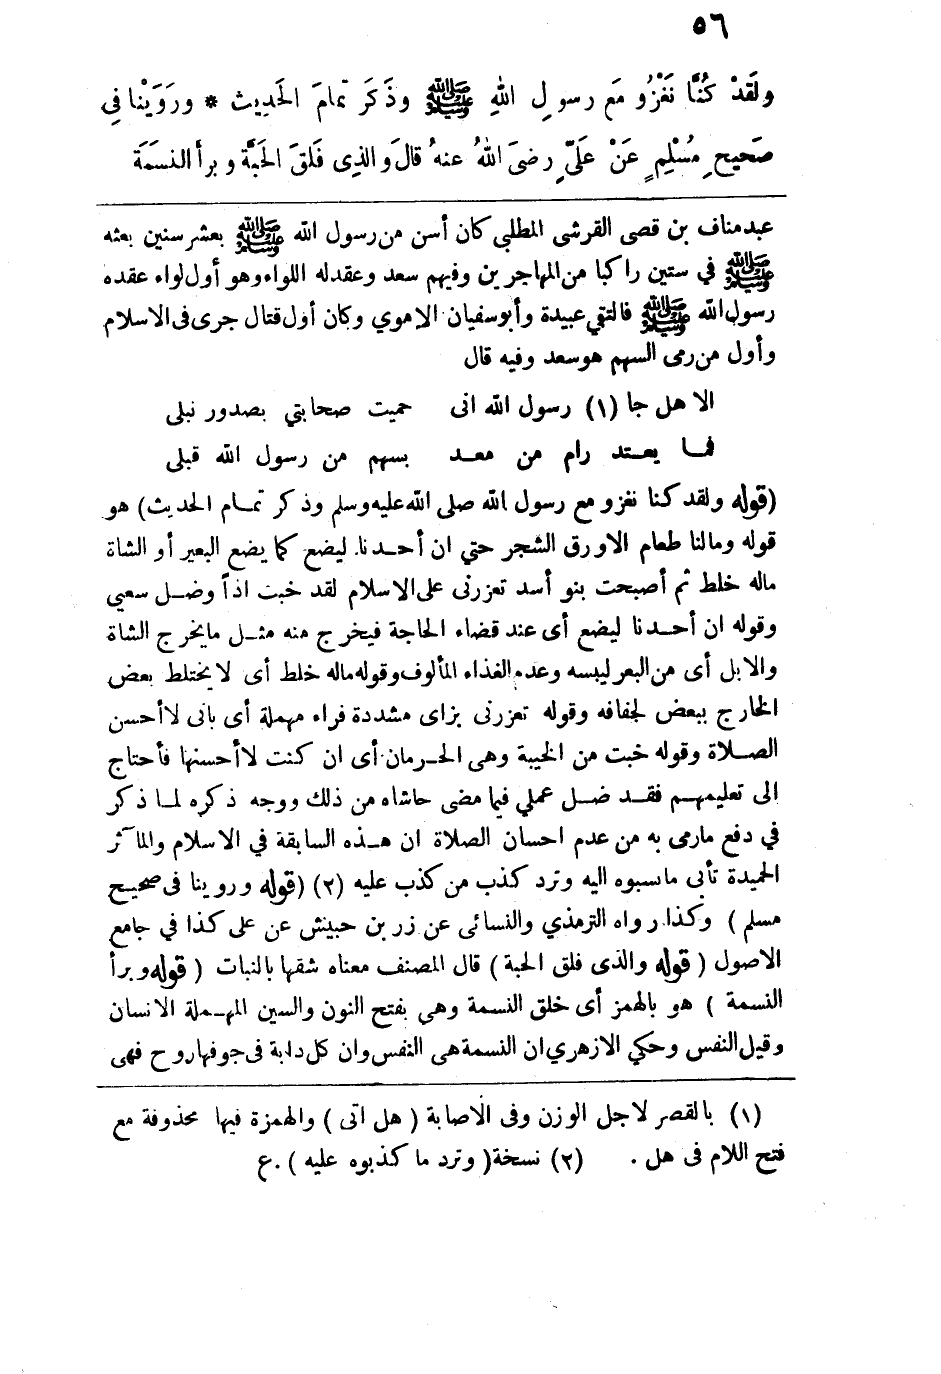 ٥٦
ولَقَدْ كُنَّا نَغْزُو مَع رسولِ اللهِ ﷺ وذَكَرَ تمامَ الحَدِيث * ورَوَيْنا فى
صَحيح ِ مُسْلِمٍ عَنْ عَلىٍّ رضىَ اللهُ عنهُ قالَ والذِى فَلَقَ الحَبَّةَ وبرأ النسَمَةَ
عبدمناف بن قصى القرشى المطلبى كان أسن من رسول الله ﷺ بعشر سنين بعثه
ﷺ في ستين راكبا من المهاجرين وفيهم سعد وعقدله اللواء وهو أول لواء عقده
رسول الله ﷺ فالتقي عبيدة وأبوسفيان الاموي وكان أول قتال جرى فى الاسلام
وأول من رمى السهم هو سعد وفيه قال
الا هل جا (١) رسول الله انى حميت صحابتي بصدور نبلى
فمـا يعـتد رام من معـد بسهم من رسول الله قبلى
(قوله ولقد كنا نغزو مع رسول الله صلى الله عليه وسلم وذكر تمـام الحديث) هو
قوله ومالنا طعام الا ورق الشجر حتي ان أحـدنا ليضع كما يضع البعير أو الشاة
ماله خلط ثم أصبحت بنو أسد تعزرنى على الاسلام لقد خبت اذاً وضـل سعيي
وقوله ان أحـدنا ليضع أى عند قضاء الحاجة فيخرج منه مثـل مايخرج الشاة
والابل أى من البعر ليبسه وعدم الغذاء المألوف وقوله ماله خلط أى لا يختلط بعض
الخارج ببعض لجفافه وقوله تعزرنى بزاى مشددة فراء مهملة أى بانى لاأحسن
الصـلاة وقوله خبت من الخيبة وهى الحـرمان أى ان كنت لاأحسنها فأحتاج
الى تعليمهـم فقـد ضـل عملي فيما مضى حاشاه من ذلك ووجه ذكره لمـا ذكر
في دفع مارمى به من عدم احسان الصلاة ان هـذه السابقة في الاسلام والمآثر
الحميدة تأبى مانسبوه اليه وترد كذب من كذب عليه (٢) (قوله وروينا فى صحيـح
مسلم) وكذا رواه الترمذي والنسائى عن زر بن حبيش عن على كذا في جامع
الاصول (قوله والذى فلق الحبة) قال المصنف معناه شقها بالنبات (قوله وبرأ
النسمة) هو بالهمز أى خلق النسمة وهى بفتح النون والسين المهـملة الانسان
وقيل النفس وحكي الازهري ان النسمة هى النفس وان كل دابة فى جوفها روح فهى
(١) بالقصر لاجل الوزن وفى الاصابة (هل اتى) والهمزة فيها محذوفة مع
فتح اللام فى هل . (٢) نسخة (وترد ما كذبوه عليه) . ع